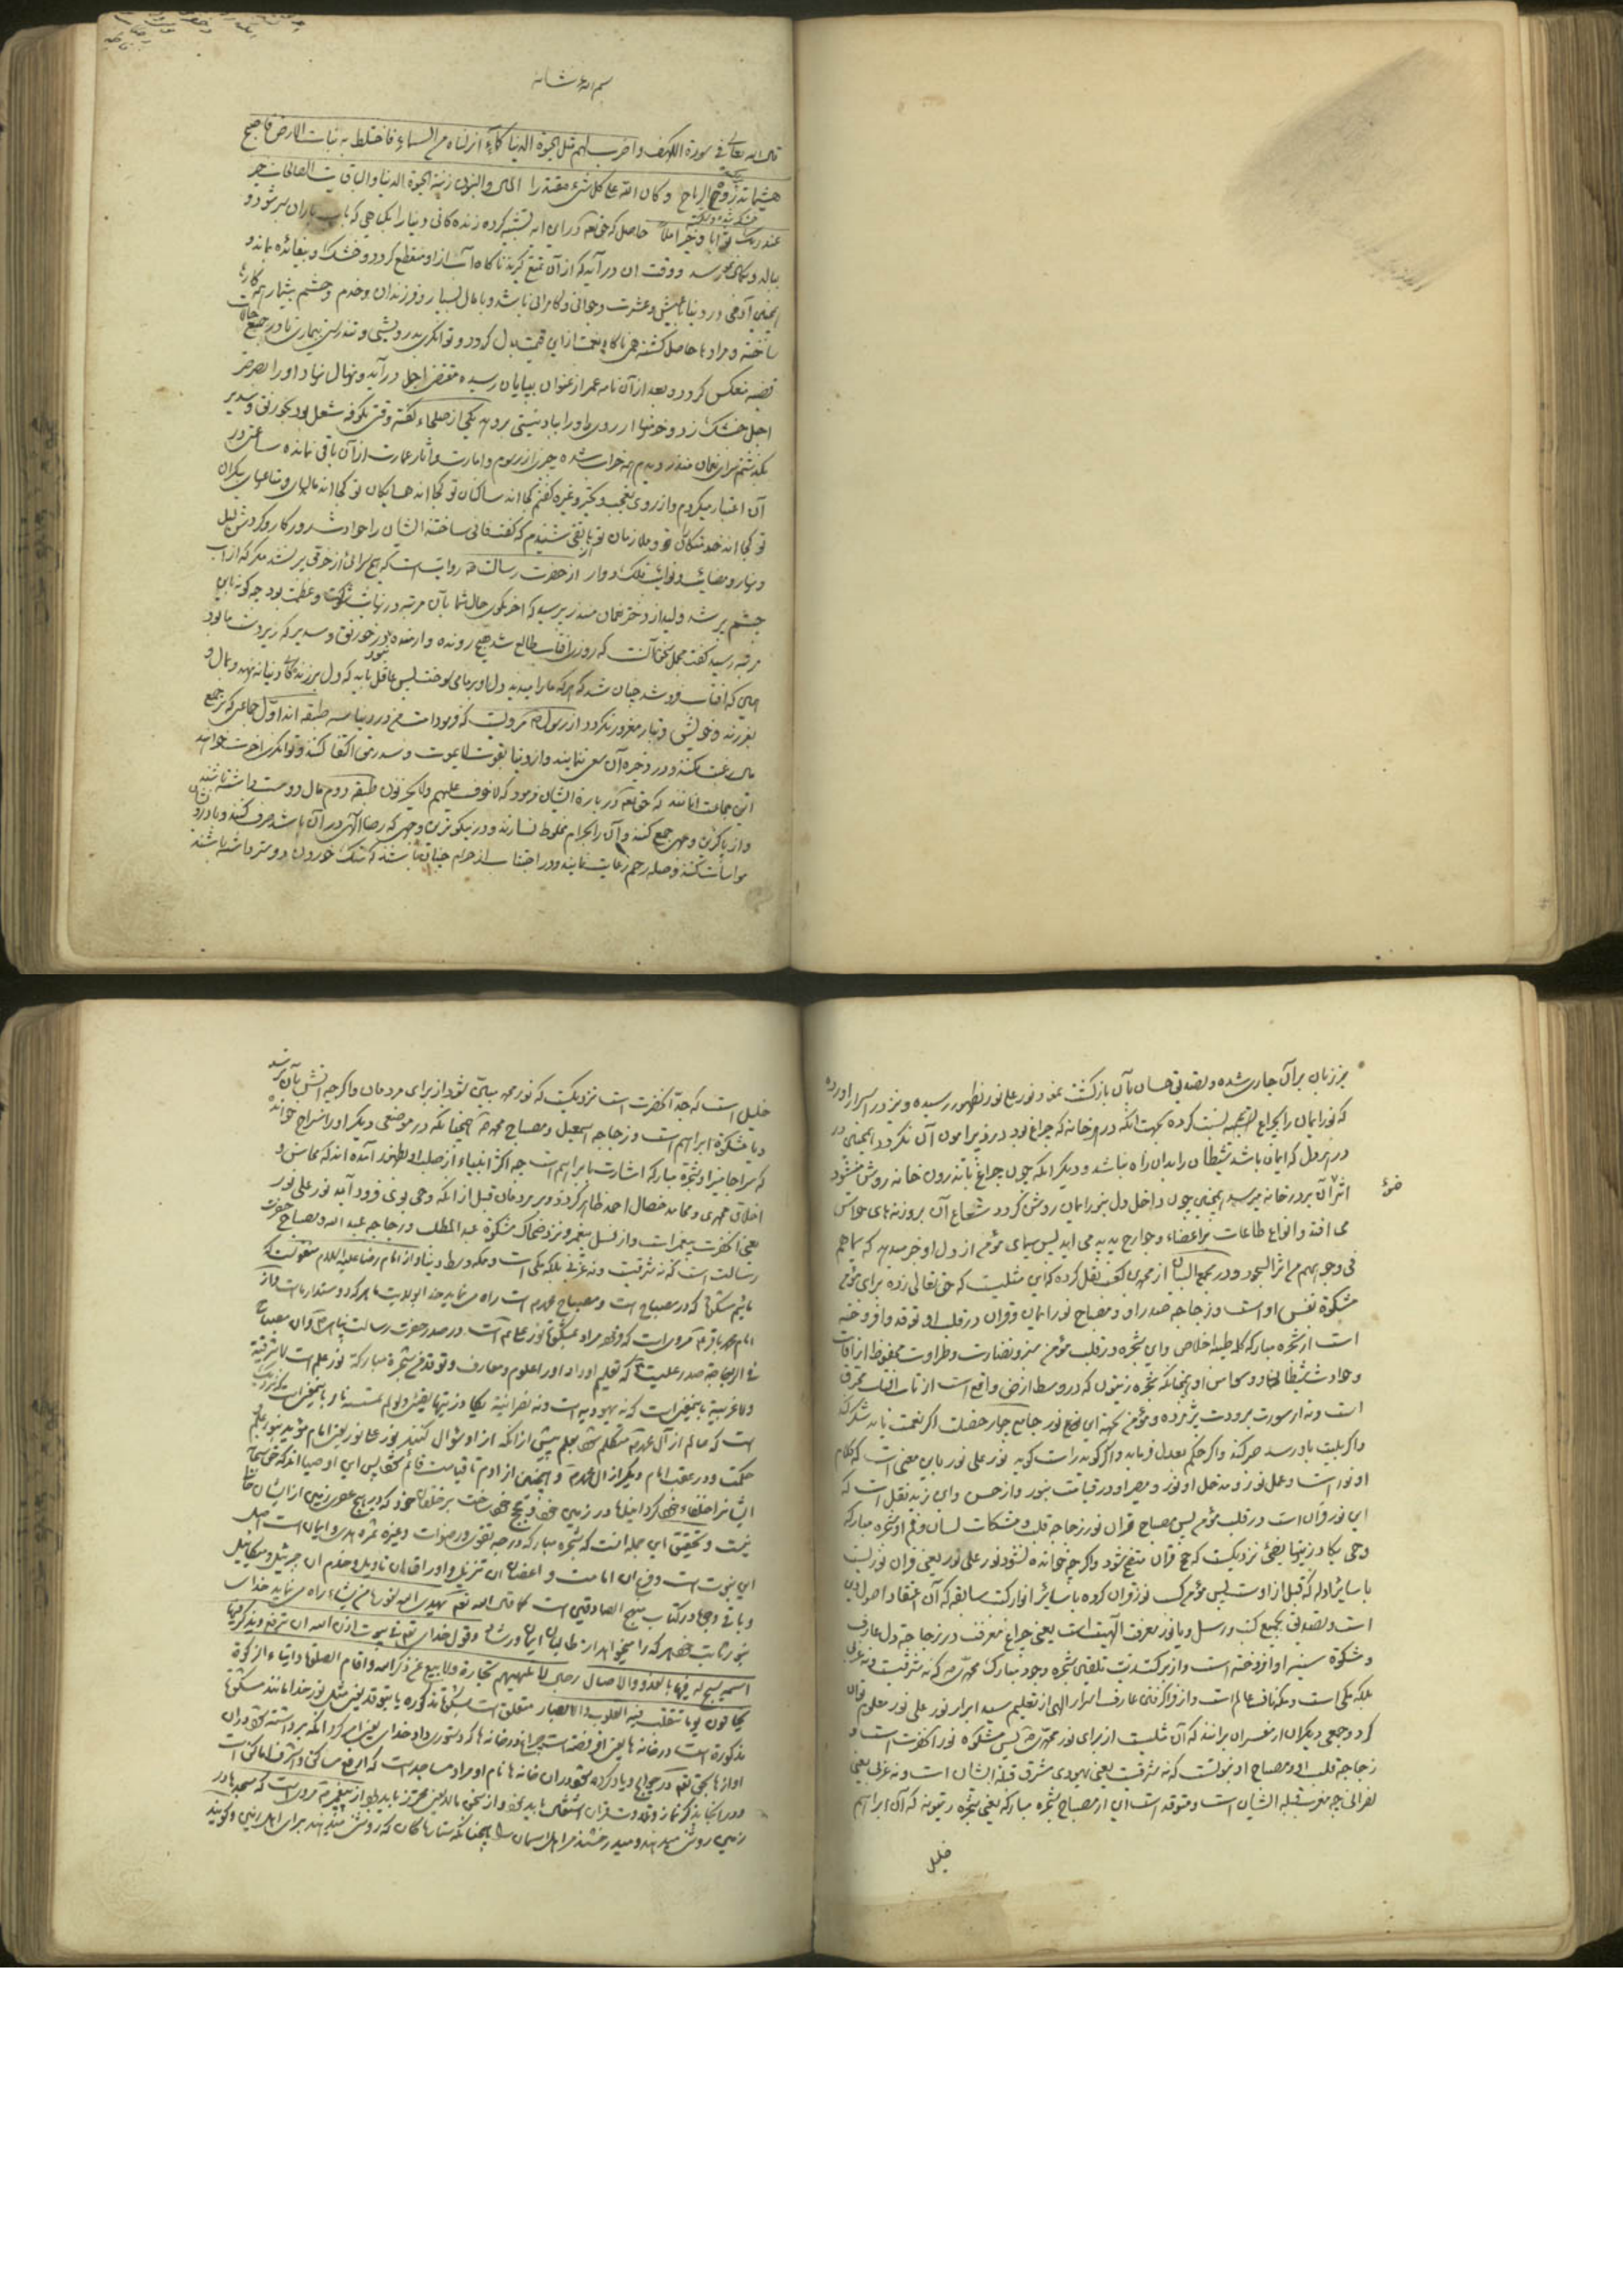 بسم الله شانه
قال الله تعالی فی سورة الکهف واضرب لهم مثل الحیوة الدنیا کماء انزلناه من السماء فاختلط به نبات الارض فاصبح
هشیما تذروه الریاح و کان الله علی کل شیء مقتدرا المال والبنون زینة الحیوة الدنیا والباقیات الصالحات خیر
عند ربک ثوابا وخیر املا حاصل که حق تعه در این ایه تشبیه کرده زنده کانی دنیا را بکیاهی که باب باران سبز شود و
ببالد و بکمال خود رسد و وقت ان در آید که از آن تمتع گیرند ناکاه آب از او منقطع کردد و خشک و بیفائده بماند و
همچنین آدمی در دنیا بعیش و عشرت و جوانی و کامرانی باشد و با مال بسیار و فرزندان و خدم و حشم بیشمار همه کارها
ساخته و مرادها حاصل کشته همی ناکاه نعمت از این قسمت بدل کردد و توانکری بدرویشی و تندرستی ببیماری و در جمیع حالات
قضیه منعکس کردد و بعد از آن نامه عمر از عنوان بپایان رسیده مقتضی اجل درآید و نهال نهاد او را بصرصر
اجل خشک زد و خرمنها
بکذشتم سرای نعمان منذر دیدم همه خراب شده چیزی از رسوم و امارت و آثار عمارت از آن باقی نمانده ساعتی در
آن اعتبار میکردم و از روی تعجب و تحیر و غیره کفتم کجا اند ساکنان تو کجا اند همسایکان تو کجا اند مالهای و متاعهای بیکران
تو کجا اند خدمتکاران تو و ملازمان تو هاتفی شنیدم که گفت فانی ساخته ایشان را حوادث روزکار و گردش لیل
و نهار و مصائب و نوائب فلک دوار از حضرت رسالت ص روایت است که هیچ سرائی از خوشی پر نشد مگر که از آب
چشم پر شد و لید از دختر نعمان منذر پرسید که اخر بگوی حال شما بآن مرتبه در نهایت شوکت و عظمت بود چگونه باین
مرتبه رسید گفت مجمل سخن آنست که روزی آفتاب طالع شد هیچ رونده و ارنده در خورنق و سدیر که زیردست ما نبود
همی که آفتاب فرو شد چنان شد که هر که ما را میدید دل او بر ما می سوخت پس عاقل باید که دل بر زندکانی دنیا ننهد و بمال و
بفرزند و خویش و تبار مغرور نکردد از رسول ص مرویست که فرمود امت من در دنیا سه طبقه اند اول جماعتی که بر جمع
مال رغبت نکنند و در ذخیره آن سعی ننمایند و از دنیا بقوت لایموت و سد رمق اکتفا کنند و توانگری اخرت خواهند
این جماعت آنانند که حق تعه در باره ایشان فرمود که لا خوف علیهم ولا هم یحزنون طبقه دوم مال دوست داشته باشند
و از پاکترین وجهی جمع کنند و آن را بحرام مخلوط نسازند و در نیکوترین وجهی که رضاء الهی در آن باشد صرف کنند و با برادران
مواسات کنند و صله رحم رعایت نمایند و در اجتناب از حرام چنان باشند که سنگ خوردن دوست‌تر داشته باشند
بر زبان بر آن جاری شده و تصدیق جنان بآن بازگشت نمود نور علی نور بظهور رسیده و نیز در اسرار اورده
که نور ایمان را بچراغ تشبیه کرده بجهت انکه در هر خانه که چراغ بود دزد پیرامون آن نکردد همچنین در
در هر دل که ایمان باشد شیطان را بدان راه نباشد و دیگر انکه چون چراغ باندرون خانه روشن میشود
ضوء
اثر آن بر در خانه میرسد همچنین چون داخل دل بنور ایمان روشن گردد شعاع آن بروزنه های حواس
می افتد و انواع طاعات بر اعضاء و جوارح پدید می اید پس سیمای مؤمن از دل او خبر میدهد که سیماهم
فی وجوههم من اثر السجود و در مجمع البیان از ابی بن کعب نقل کرده که این مثلیست که حق تعالی زده برای مؤمن
مشکوة نفس او است و زجاجه صدر او و مصباح نور ایمان و قران در قلب او توقد و افروخته
است از شجره مبارکه کلمه طیبه اخلاص و این شجره در قلب مؤمن سبز و بنضارت و طراوت محفوظ از آفات
و حوادث شیطانی و وسواس او همچنانکه شجره زیتون که در وسط ارض واقع است از تاب افتاب محترق
است و نه از سورت برودت پژمرده و مؤمن بجهة این نور جامع چهار خصلت است اکر نعمت یابد شکر کند
و اکر بلیت باو رسد صبر کند و اکر حکم بعدل فرماید و اکر گوید راست گوید نور علی نور باین معنی است که کلام
او نور است و عمل نور و مدخل او نور و مصیر او در قیامت بنور و از حسن و ابن زید نقل است که
این نور قران است در قلب مؤمن پس مصباح قران نور زجاجه قلب و مشکات لسان و فم او شجره مبارکه
وحی یکاد زیتها یضئ نزدیکست که حجج قران متضح شود و اکر چه خوانده نشود نور علی نور یعنی قران نوریست
با سایر ادله که قبل از اوست پس مؤمن کسب نور قران کرده با سایر انوار کتب سابقه که آن اعتقاد اصول دین
است و تصدیق بجمیع کتب و رسل و یا نور معرفت الهیت است یعنی چراغ معرفت در زجاجه دل عارف
و مشکوة سینه او افروخته است و از برکت زیت تلقین شجره وجود مبارک محمدی ص که نه شرقیست و نه غربی
بلکه مکی است و مکه ناف عالم است و از فراگرفتن عارف اسرار الهی از تعلیم سید ابرار نور علی نور معلوم توان
کرد و جمعی دیگر از مفسران برانند که آن مثلیست از برای نور محمدی ص پس مشکوة نور آنحضرت است و
زجاجه قلب او و مصباح او نبوتست که نه شرقیست یعنی یهودی مشرق قبله ایشان است و نه غربی یعنی
نصرانی چه مغرب قبله ایشان است و متوقد است این از مصباح شجره مبارکه یعنی شجره زیتونه که آن ابراهیم
خلیل
خلیل است که جد آنحضرت است نزدیکست که نور محمد مبین شود از برای مردمان و اکرچه آتش بآن نرسد
و یا مشکوة ابراهیم است و زجاجه اسمعیل و مصباح محمد ص همچنانکه در موضعی دیگر او را سراج خوانده
که سراجا منیرا و شجره مبارکه اشارت بابراهیم است چه اکثر انبیاء از صلب او بظهور آمده اند که محاسن و
اخلاق محمدی و محامد خصال احمد ظاهر کردد بر مردمان قبل از انکه وحی بوی فرود آید نور علی نور
یعنی آنحضرت پیغمبر است و از نسل پیغمبر و نزد ضحاک مشکوة عبد المطلب و زجاجه عبد الله و مصباح حضرت
رسالت است که نه شرقیست و نه غربی بلکه مکی است و مکه وسط دنیا و از امام رضا علیه السلام منقولست که
مائیم مشکوة که در مصباح است و مصباح محمد ص است راه می نماید خدا بولایت ما هر که را دوست دارد
امام محمد باقر ع مرویست که مراد بمشکوة نور علم است در صدر حضرت رسالت پناه ص و آن مصباح
فی الزجاجة صدر علیست ع که تعلیم او داد او را علوم و معارف و توقد من شجرة مبارکة نور علم است لا شرقیة
ولا غربیة باینمعنی است که نه یهودیه است و نه نصرانیة یکاد زیتها یضئ ولو لم تمسسه نار باینمعنی است که نزدیک
است که عالم از آل محمد ص متکلم شود بعلم پیش از انکه از او سؤال کنند نور علی نور یعنی امام مؤید بنور علم
حکمت و در عقب امام دیگر از ال محمد ص و همچنین از ادم تا قیامت قائم شود پس این اوصیا اند که حق سبحانه
ایشان را خلفاء خود کردانید در زمین خود و حجج خود ساخت بر خلقان خود که در هیچ عصر زمین از ایشان خالی
نیست و تحقیق این جمله انست که شجره مبارکه درجه تقوی و رضوان و غیره ثمره هدی و ایمان است اصل
این نبوت است و فرع ان امامت و اغصان ان تنزیل و اوراق ان تاویل و خدم ان جبرئیل و میکائیل
و باقی وجوه در کتاب منهج الصادقین است کما قال الله تعه یهدی الله لنوره من یشاء راه می نماید خدای
بنور خود هر که را میخواهد از طالبان ایمان ورشاد و قول خدای تعه فی بیوت اذن الله ان ترفع ویذکر فیها
اسمه یسبح له فیها بالغدو والاصال رجال لا تلهیهم تجارة ولا بیع عن ذکر الله واقام الصلوة وایتاء الزکوة
یخافون یوما تتقلب فیه القلوب والابصار متعلق است بمشکوة مذکوره یا بتوقد یعنی مثل نور خدا مانند مشکوة
مذکوره است در خانه ها یعنی افروخته است چراغ در خانه ها که دستوری داد خدای یعنی امر کرد انکه برداشته شود در آن
اوازها بحق تعه و یاد کرده شود در ان خانه ها نام او و مراد مساجد است که ارفع مساکن و اشرف اماکن است
و در آنجا بذکر نماز و تلاوت قران اشتغال باید نمود و از سخن مالایعنی محترز باید بود از پیغمبر ص مرویست که مسجدها در
زمین روشنی میدهند و میدرخشند مر اهل اسمان را همچنانکه ستارهاکان که روشنی میدهند برای اهل زمین و گویند